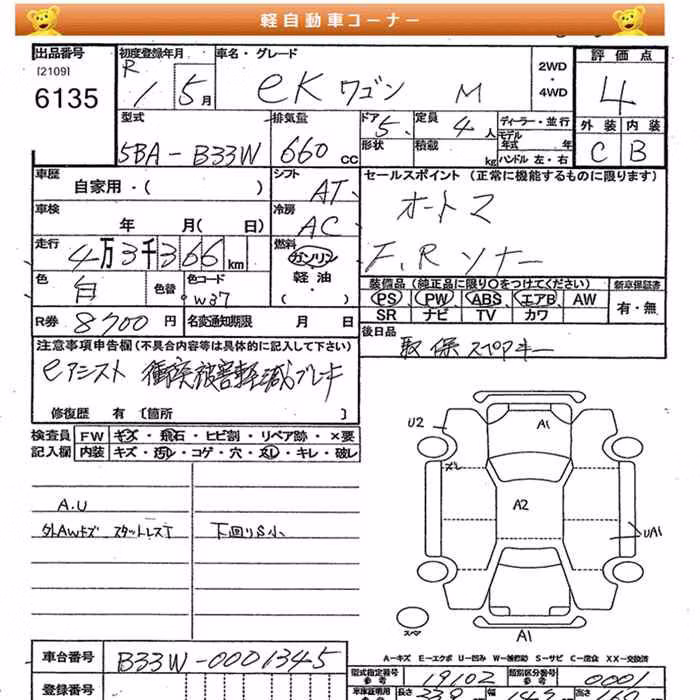 軽自動車コーナー
出品番号
[2109]
6135
初度登録年月
R1 5月
車名・グレード
eK ワゴン M
2WD
・
4WD
評価点
4
外装 内装
C B
型式
5BA-B33W
排気量
660 cc
ドア
5
形状
定員
4人
積載
kg
ディーラー・並行
モデル
年式 年
ハンドル 左・右
車歴
自家用・( )
シフト
AT
セールスポイント(正常に機能するものに限ります)
オートマ
F,Rソナー
車検
年 月( 日)
冷房
AC
走行
4万3千366km
燃料
ガソリン
軽油
・
( )
色
白
色替
色コード
W37
装備品(純正品に限り○をつけてください)
PS PW ABS エアB AW
SR ナビ TV カワ
新車保証書
有・無
R券 8700円
名変通知期限 月 日
後日品
取 保 スペアキー
注意事項申告欄(不具合内容等は具体的に記入して下さい)
eアシスト 衝突被害軽減ブレーキ
修復歴 有 [箇所 ]
検査員
記入欄
FW キズ・飛石・ヒビ割・リペア跡・×要
内装 キズ・汚レ・コゲ・穴・スレ・キレ・破レ
A.U
外AWキズ スタットレスT
下回りS小
U2
A1
A2
UA1
スペア
A1
A-キズ E-エクボ U-凹み W-補修跡 S-サビ C-腐食 XX-交換済
車台番号
B33W-0001345
登録番号
型式指定番号
参考
19102
類別区分番号
参考
0001
車庫証明用
長さ
339
幅
高さ